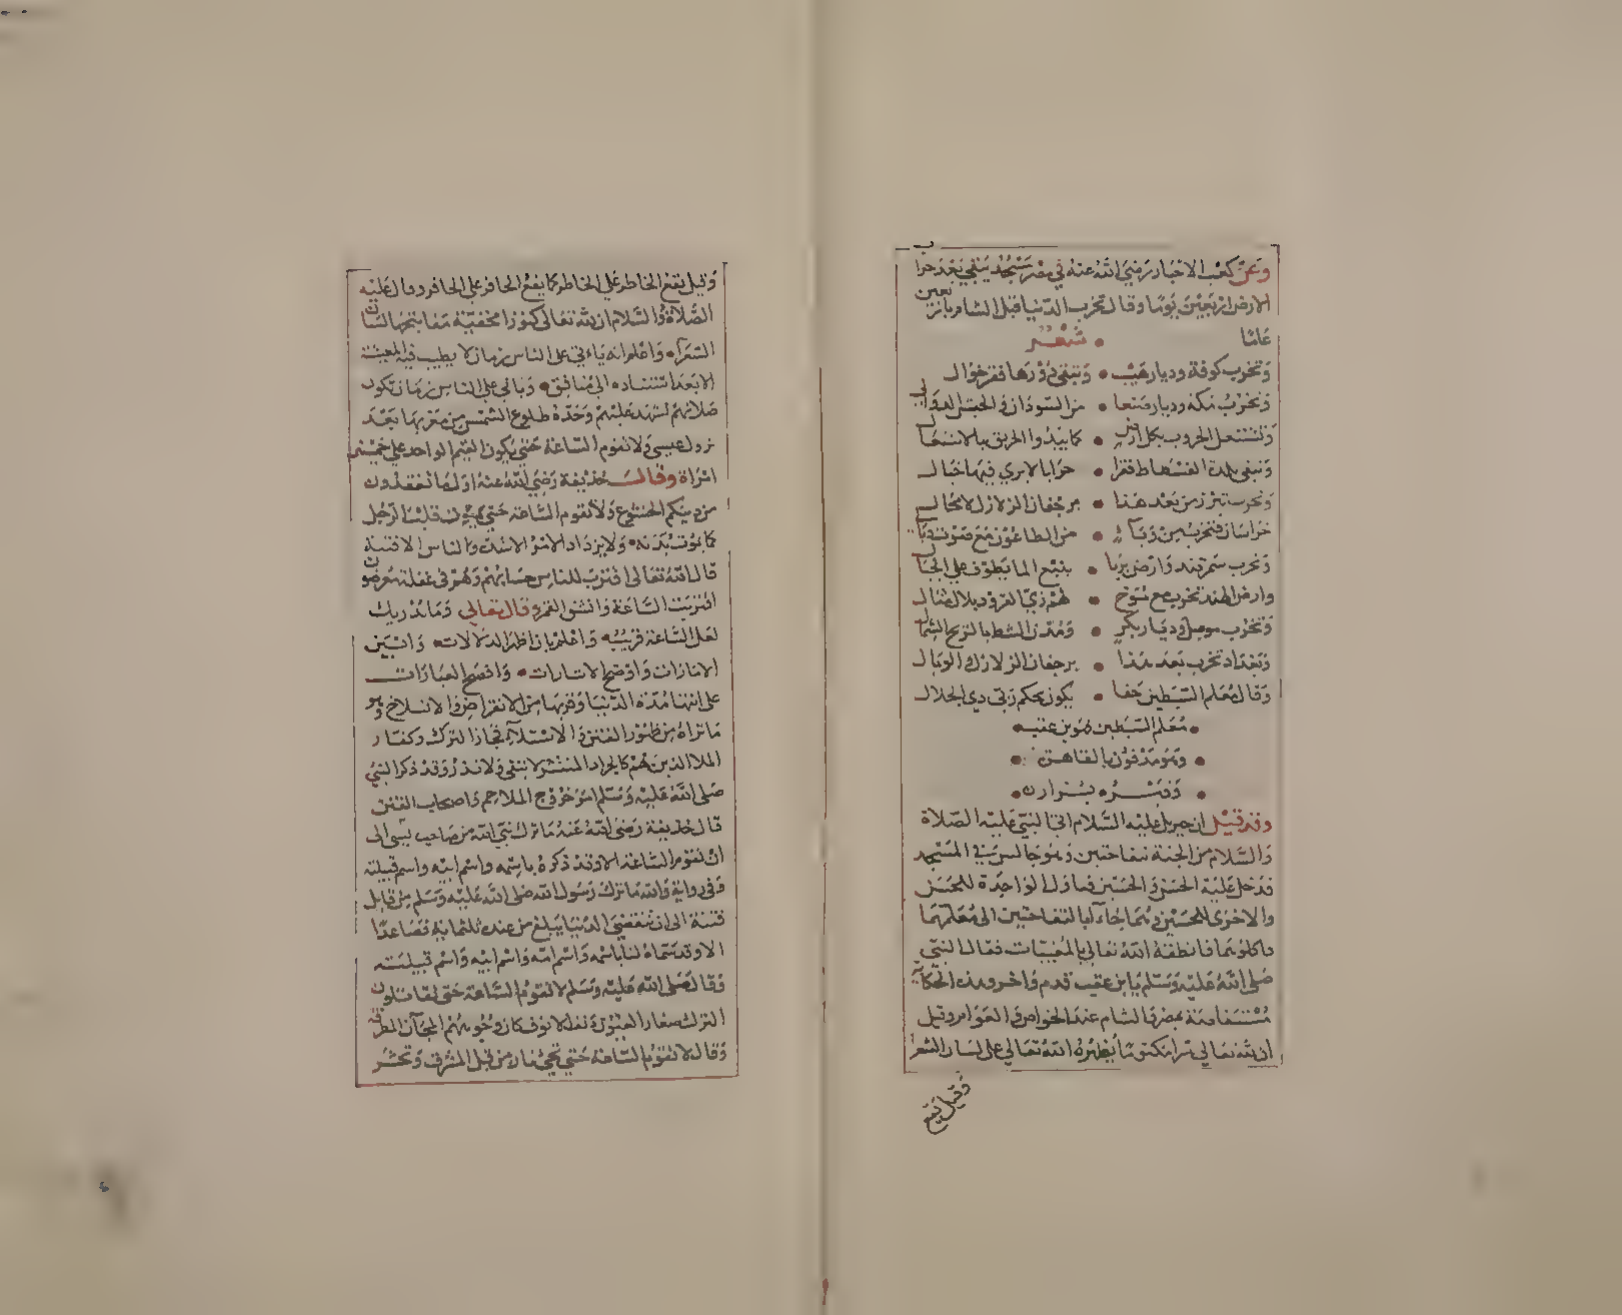 وعن كعب الاحبار رضي الله عنه في مصر مسجد يبقي بعد خراب
الارض اربعين يوما وقال تخرب الدنيا قبل الشام باربعين
عاما • شعر
وتخرب كوفة وديار هيب • وتبقي دورها فقر خوال
وتخرب مكة وديار صنعا • من السودان في الجيش الدوالي
وتشتعل الحروب بكل ارض • كما يبدوا الحريق بالاشتعال
وتبقي بلدة الفسطاط فقرا • خرابا لا يري فيها خيال
وتحرست تبرز من بعد هذا • برجفان الزلازل لا محال
خراسان فتخرب من وباء • من الطاعون مع صوت
وتخرب سمرقند وارض • بنبع الما يطوف علي الجبال
وارض الهند تخرب مع • لهم زي القرود بلا مثال
وتخرب موصل وديار بكر • ومدن الشط بالريح الشمال
وبغداد تخرب بعد هذا • برجفان الزلازل والوبال
وقال معلم السبطين حقا • يكون بحكم ربي ذي الجلال
• معلم السبطين هو بن عقب •
• وهو مدفون بالقاهرة •
• وقبره يزار •
وقد قيل ان جبريل عليه السلام اتي النبي عليه الصلاة
والسلام من الجنة بتفاحتين وهو جالس في المسجد
فدخل عليه الحسن والحسين فناول الواحدة للحسن
والاخري للحسين وهما جاءا بالتفاحتين الي معلمهما
فاكلوهما فانطقه الله تعالي بالمغيبات فقال النبي
صلي الله عليه وسلم يا بن عقب قدم واخر وهذه الحكاية
مستفاضة بمصر والشام عند الخواص والعوام وقيل
ان لله تعالي سرا مكتوما يظهره الله تعالي علي لسان الشعر
وقيل تقع
وقيل تقع الخاطر علي الخاطر كما يقع الحافر علي الحافر وقال عليه
الصلاة والسلام ان لله تعالي كنوزا مخفية مفاتيحها لسان
الشعراء واعلم انه يأتي علي الناس زمان لا يطيب فيه المعيشة
الا بعد استناده الي منافق • وياتي علي الناس زمان تكون
صلاتهم لشهد عليهم وحده طلوع الشمس من مغربها بعد
نزول عيسي ولا تقوم الساعة حتي يكون القيم الواحد علي خمسين
امراة وقال حذيفة رضي الله عنه اول ما تفقدون
من دينكم الخشوع ولا تقوم الساعة حتي يموت قلب الرجل
كما يموت بدنه • ولا يزداد الامر الا شدة والناس الا فتنة
قال الله تعالي اقترب للناس حسابهم وهم في غفلة معرضون
اقتربت الساعة وانشق القمر وقال تعالي وما يدريك
لعل الساعة قريب • واعلم بان اظهر الدلالات • وابين
الامارات واوضح الاشارات • وافصح العبارات
علي انتها مدة الدنيا وقربها من الانقراض والانسلاخ وهو
ما تراه من ظهور الفتن في الاسلام تجاز الترك وكفار
الملا الذين هم كالجراد المنتشر لا تبقي ولا تذر وقد ذكر النبي
صلي الله عليه وسلم امر خروج الملاحم واصحاب الفتن
قال حذيفة رضي الله عنه ما ترك نبي الله من صاحب يسمي الي
ان تقوم الساعة الا وقد ذكره باسمه واسم ابيه واسم قبيلته
وفي رواية والله ما ترك رسول الله صلي الله عليه وسلم من قايل
فتنة الي ان تنقضي الدنيا يبلغ من عنده ثلثماية فصاعدا
الا وقد سماه لنا باسمه واسم امه واسم ابيه واسم قبيلته
وقال صلي الله عليه وسلم لا تقوم الساعة حتي تقاتلون
الترك صغار العيون ذلف الانوف كان وجوههم المجان المطرقة
وقال لا تقوم الساعة حتي تجئ نار من قبل المشرق وتحشر